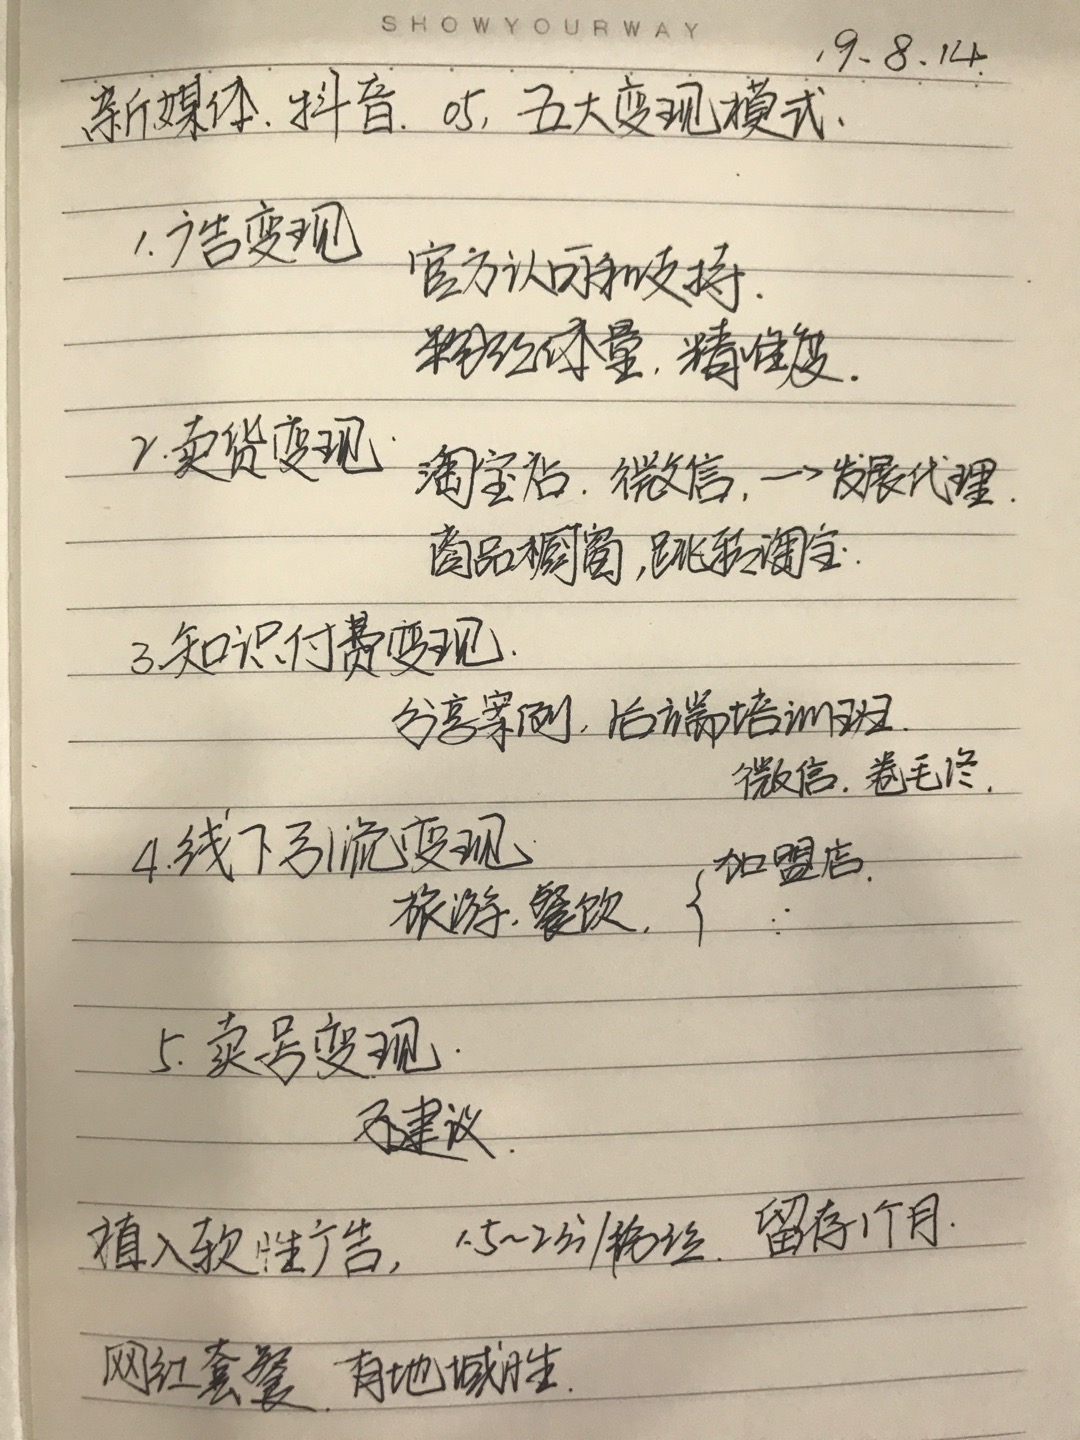 SHOWYOURWAY
19.8.14.
新媒体.抖音. 05. 五大变现模式.
1.广告变现
官方认可和支持.
粉丝体量.精准度.
2.卖货变现.
淘宝店.微信.→发展代理.
商品橱窗,跳转淘宝.
3.知识付费变现.
分享案例,后端培训班.
微信.卷毛佟.
4.线下引流变现.
加盟店.
旅游.餐饮. {
5.卖号变现.
不建议.
植入软性广告, 1.5~2分/粉丝. 留存1个月.
网红套餐. 有地域性.